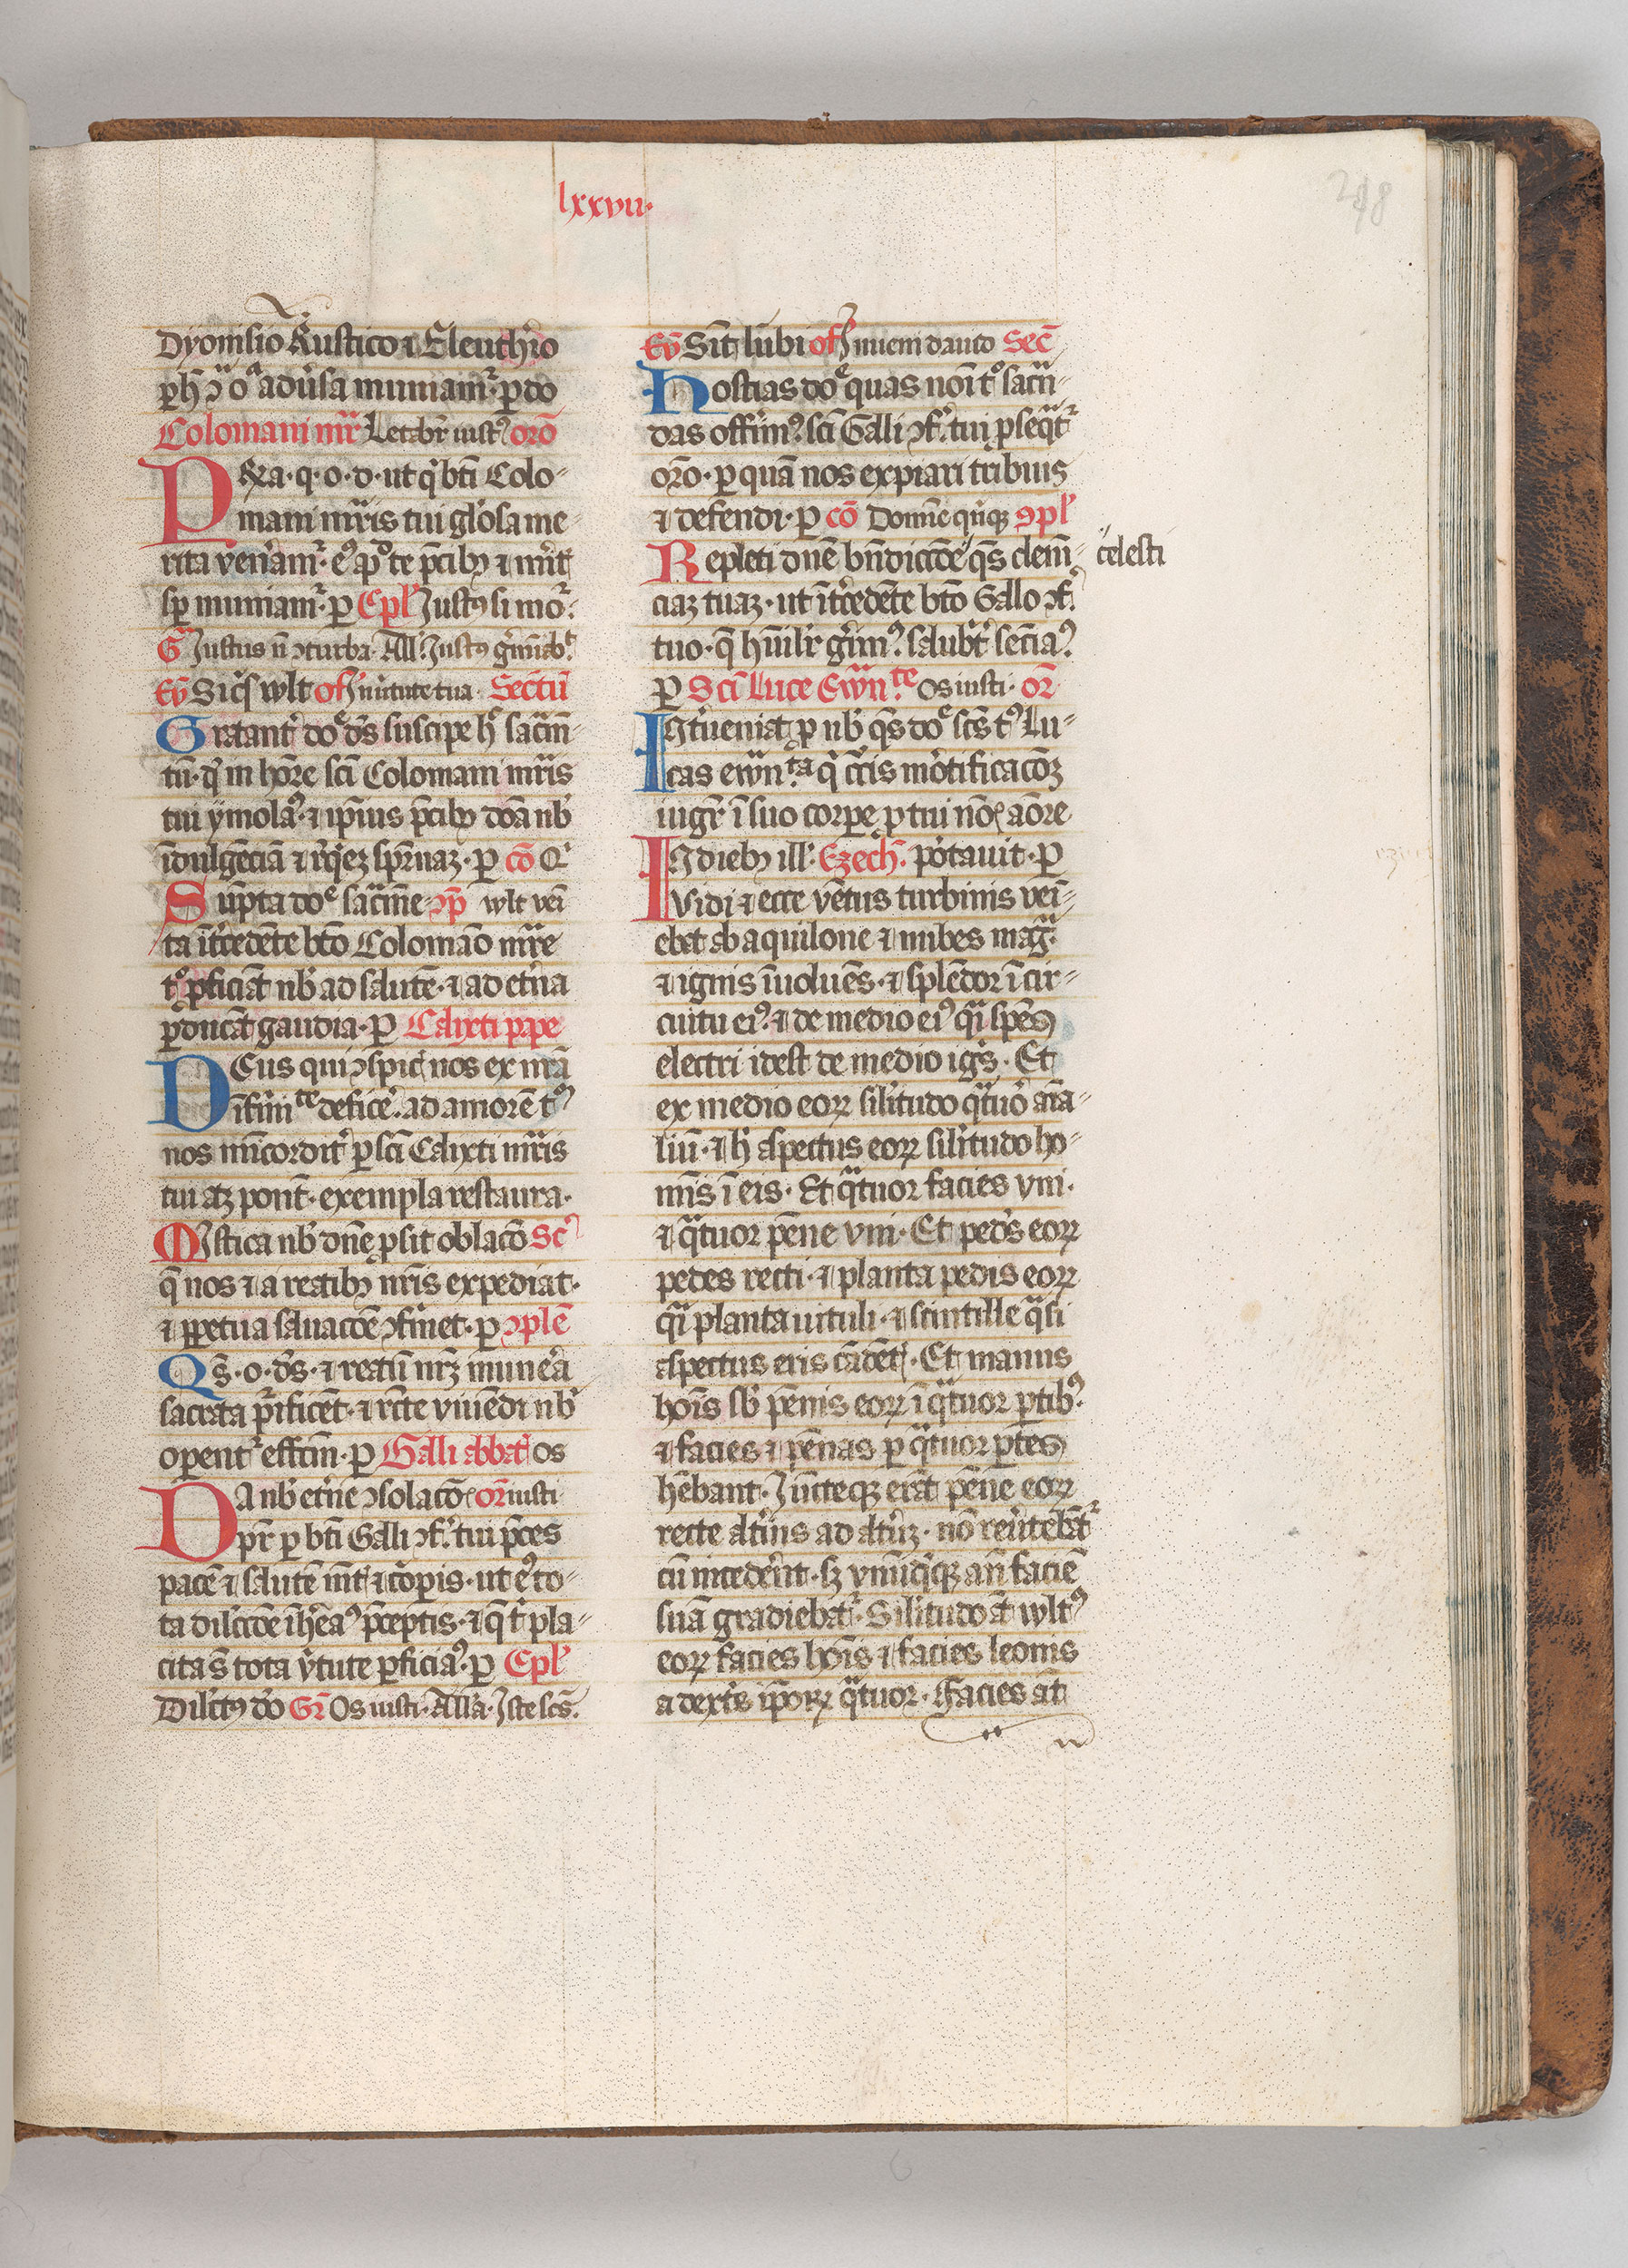 lxxvii·
248
Dyonisio Rustico ⁊ Eleuthio
ꝑ h̄ ↄ̄ oa adũsa muniamᷣ· ꝑ do
Colomani mr̄ Letabr̄ iustꝰ oro
Pr̄a· q· o· d· ut q̇ bt̄i Colo-
mani mr̄is tui glo̾sa me-
rita ven̾amᷣ· eꝰ ap̄ te p̄cibꝫ ⁊ mi̾t
sp̄ muniamᷣ· ꝑ Epl̾ Justꝰ si moᷣ·
G Justus n̄ ↄturba· All̾· Justꝰ g̾mīabᷣ·
Ev̄ Siq̾s wlt of̾ in v̾tute tua· Sectū
Gratant̾ doe ds̄ suscipe hͦ sacm̄-
tū· qͥ in hore̅ sci̅ Colomani mr̄is
tui ymolaꝰ· ⁊ ip̄ius p̄cibꝫ dōa nb̾
īdulgēciā ⁊ req̾eꝫ sp̄t̾naꝫ· ꝑ cō Qͥ
Sūpta doe sacᷓme· ↄp̄ wlt veī
ta īt̾cedēte bt̄o Colomāo mr̄e
tͦ ꝓficiāt nb̾ ad salutē· ⁊ ad et̾na
ꝑducāt gaudia· ꝑ Calixti ppe
DEus qui ↄspic̾ nos ex nr̄a
īfirmite defice̾· ad amorē tͦꝰ
nos mīcordit̾ ꝑ sci̅ Calixti mr̄is
tui atꝫ pont̄· exempla restaura·
Mistica nb̾ dn̄e ꝓsit oblacō Scͥ
q̄ nos ⁊ a reatibꝫ nr̄is expediat·
⁊ ꝑpetua saluacōe ↄfirmet· ꝑ ↄplē
Qs̄· o· ds̄· ⁊ reatū nr̄ꝫ mune̾a
sacrata p̾ificēt· ⁊ rc̄te viuēdi nb̾
oꝑentᷣ effc̄m· ꝑ Galli abbat̾ os
Da nb̾ et̾ne ↄsolacō· or̄ iusti
pr̄ ꝑ bt̄i Galli ↄf̾· tui p̄ces
pacē ⁊ salutē mt̄ ⁊ coꝑis· ut eꝰ to-
ta dilcc̄oe īhe̾aꝰ p̄ceptis· ⁊ q̄ t̾ pla-
cita s̄ tota v̾tute ꝑficiaꝰ· ꝑ Epl̾
Dilc̄tꝰ do Gr̄ Os iusti· All̾a· Iste scs̄·
Ev̄ Sīt lūbi of̾ inueni dauid Sec̄
Hostias doe quas noīi tͦ sacᷓn-
das off̾imꝰ· sci̅ Galli ↄf̾· tui ꝓseq̄tᷣ
oro· ꝑ quā nos expiari tribuis
⁊ defendi· ꝑ cō Domīe qi̾nqꝫ ↄpl̾
Repleti dn̄e bn̄diccōe qs̄ clem̄- celesti
ciaꝫ tuaꝫ· ut īt̾cedēte bt̄o Gallo ↄf̾·
tuo· q̄ hūilr̾ ge̾imꝰ· salubr̾t̾ sēciaꝰ·
ꝑ Sci̅ Luce Ewnte· Os iusti· or̄
Int̾ueniat ꝑ nb̾ qs̄ doe scs̄ tꝰ Lu-
cas ewn̄ta· qͥ crᷓcis mo̾tificacōꝫ
iugr̾ ī suo corꝑe ꝓ tui nō· aōre
In diebꝫ ill̾· Ezech̄· po̾tauit· ꝑ
Vidi ⁊ ecce vētus turbinis veī-
ebat ab aquilone ⁊ nubes magᷓ·
⁊ ignis īuoluēs· ⁊ splēdor ī cir-
cuitu eiꝰ· ⁊ de medio eiꝰ qᷓi spēs
electri idest de medio ig̾s· Et
ex medio eoꝝ sil̾itudo qᷓtuoͬ aīa-
liū· ⁊ h̾ aspectus eoꝝ sil̾itudo ho-
mīs ī eis· Et qᷓtuor facies vni·
⁊ qᷓtuor pēne vni· Et ped̾s eoꝝ
pedes recti· ⁊ planta pedis eoꝝ
qᷓi planta vituli· ⁊ scintille qᷓsi
aspectus eris cādēt̾· Et manus
hoīs sb̾ pēnis eoꝝ ī qᷓtuor ꝑtibꝰ·
⁊ facies ⁊ pēnas ꝑ qᷓtuor ꝑtes
hēbant· Jūcteqꝫ erāt pēne eoꝝ
recte alt̾ius ad alt̾uꝫ· nō reu̾tebātᷣ
cū incede̾nt· sꝫ vnūq̾dqꝫ an̄ faciē
suā gradiebatᷣ· Silitudo āt wltꝰ
eoꝝ facies hoīs ⁊ facies leonis
a dext̾s ip̄oꝝ qᷓtuor· Facies āt